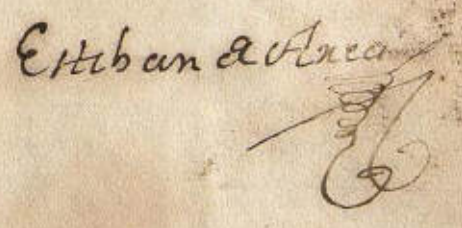 Esteban de Arca